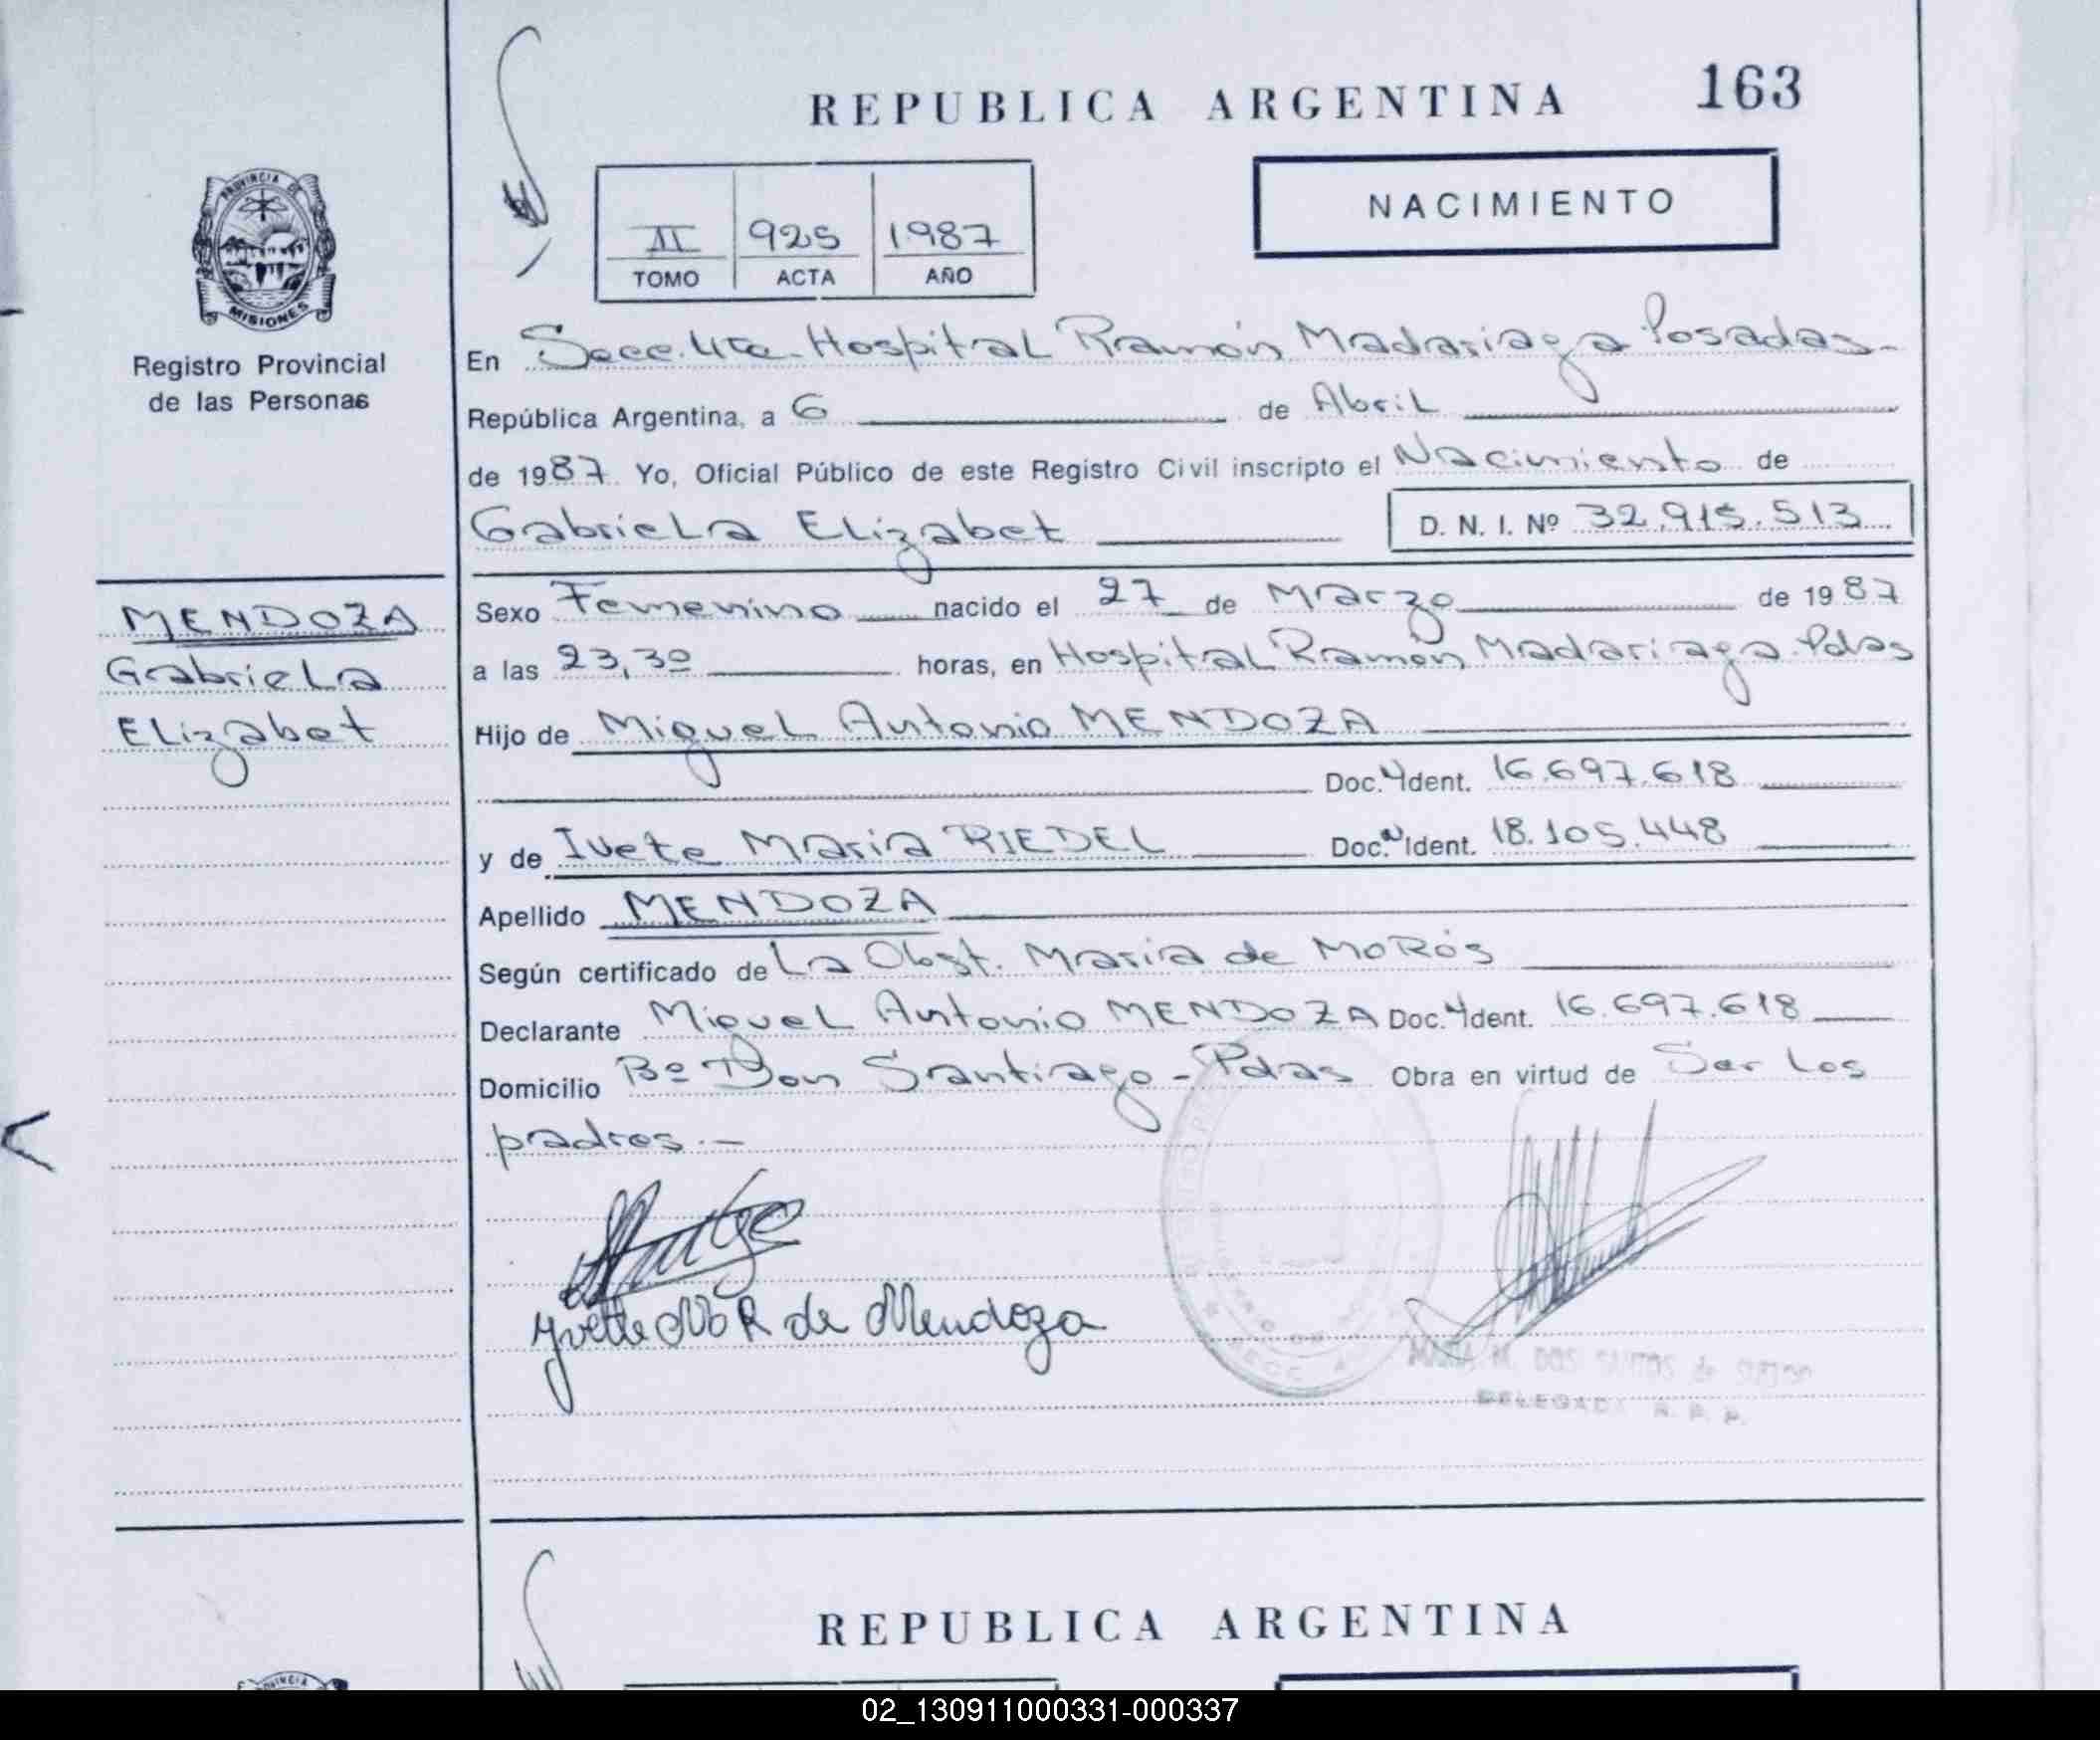 REPUBLICA ARGENTINA 163
PROVINCIA DE
MISIONES
Registro Provincial
de las Personas
NACIMIENTO
II 925 1987
TOMO ACTA AÑO
En Secc. 4ta - Hospital Ramón Madariaga Posadas -
República Argentina, a 6 de Abril
de 1987 Yo, Oficial Público de este Registro Civil inscripto el Nacimiento de
Gabriela Elizabet D. N. I. Nº 32.915.513
MENDOZA
Gabriela
Elizabet
Sexo Femenino nacido el 27 de Marzo de 1987
a las 23,30 horas, en Hospital Ramón Madariaga - Pdas
Hijo de Miguel Antonio MENDOZA
Doc. Ident. 16.697.618
y de Ivete Maria RIEDEL Doc. Ident. 18.105.448
Apellido MENDOZA
Según certificado de La Obst. Maria de MoRós
Declarante Miguel Antonio MENDOZA Doc. Ident. 16.697.618
Domicilio Bº Don Santiago - Pdas Obra en virtud de Ser los
padres.-
Yvette M R de Mendoza
MARIA M. DOS SANTOS de
DELEGADA R. P. P.
REPUBLICA ARGENTINA
02_130911000331-000337